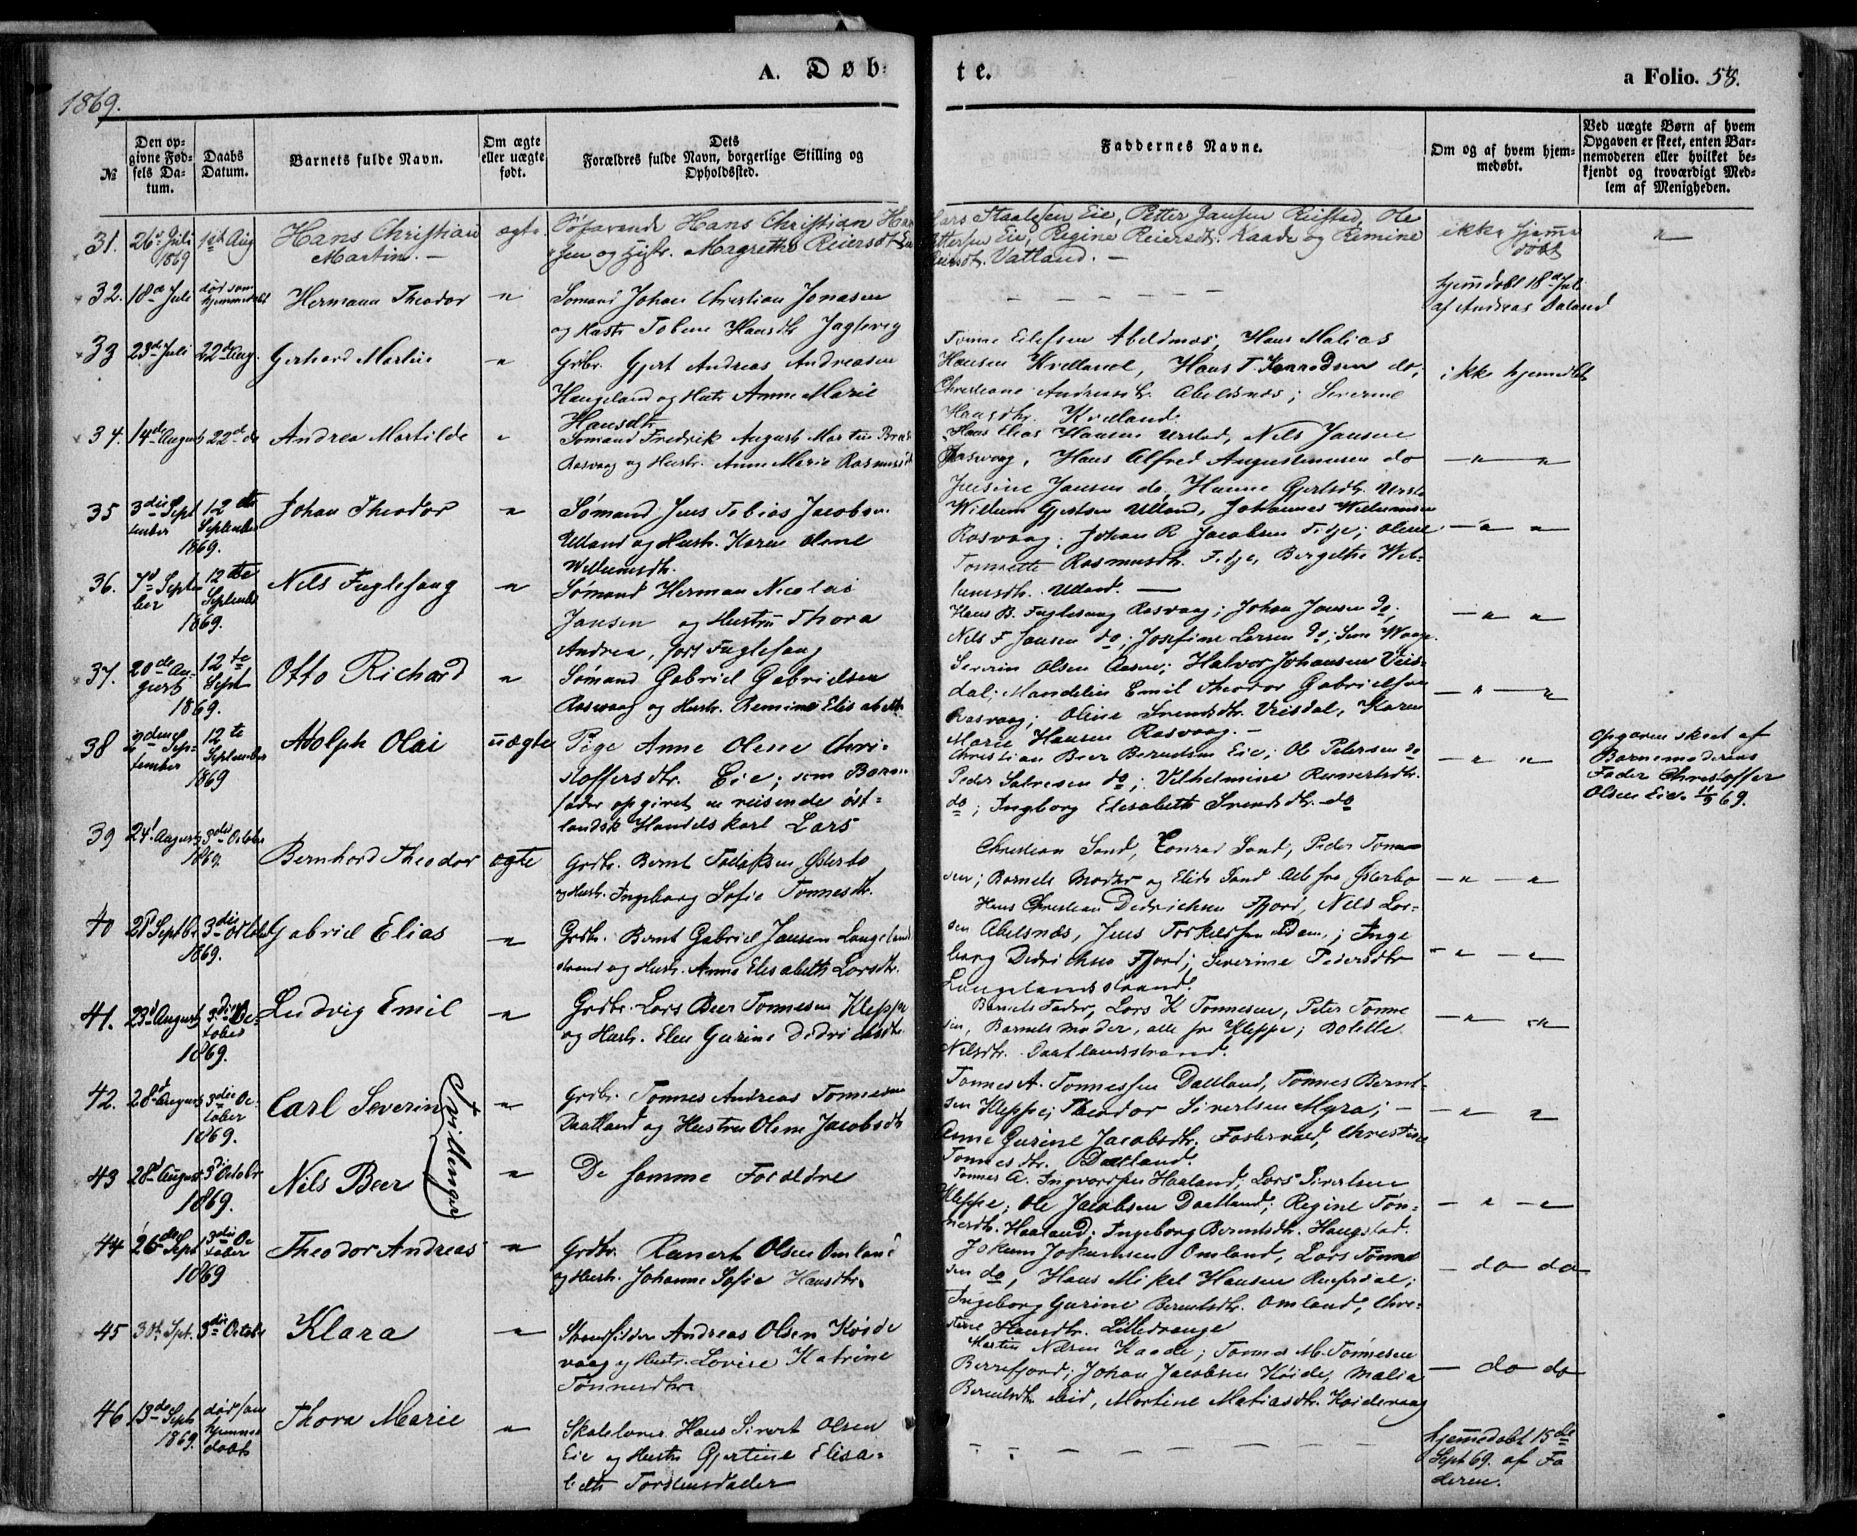 1869.
A. Døb-
te.
a Folio. 58.
№
Den op-
givne Fød-
sels Da-
tum.
Daabs
Datum.
Barnets fulde Navn.
Om ægte
eller uægte
født.
Dets
Forældres fulde Navn, borgerlige Stilling og
Opholdssted.
Faddernes Navne.
Om og af hvem hjem-
medøbt.
Ved uægte Børn af hvem
Opgaven er skeet, enten Bar-
nemoderen eller hvilket be-
kjendt og troværdigt Med-
lem af Menigheden.
31. 26 Juli
1869
1ste Aug
Hans Christian
Martin. —
ægte.
Søfarende Hans Christian Han
sen og Hustr. Magrethe Reiersdt
Lars Staalesen Eie, Petter Jansen Reistad, Ole
Pettersen Eie, Regine Reiersdt. Kaade og Remine
Reiersdt. Vatland. —
ikke hjemme
døbt
"
32. 18de Juli
død som
hjemmedøbt
Hermann Theodor
"
Sømand Johan Christian Jonasen
og Hustr Tobine Hansdtr Jagtevig
— — — — — —
hjemdøbt 18de Juli
af Andreas Daland
33 23de Juli 22de Aug.
Gerhard Martin
"
Grdbr. Gjert Andreas Andreasen
Haugeland og Hustr Anne Marie
Hansdtr
Tønne Eilefsen Abelsnæs, Hans Malias
Hansen Kvelland, Hans T. Konradsen do,
Christiane Andreasdt. Abelsnæs; Severine
Hansdtr. Kvelland.
ikke hjemdbt
34. 14de August 22de do
Andrea Martilde
"
Sømand Fredrik August Martin
Rasvaag og Hustr. Anne Marie Rasmusdt
Hans Elias Hansen Ursted, Nils Jansen
Rasvaag, Hans Alfred Augustinusen do
Jensine Jansen do, Hanne Gjertsdt. Ursta
— " — "
35 3die Sept
tember
12te
September
1869.
Johan Theodor
"
Sømand Jens Tobias Jacobsen
Ulland og Hustr. Karen Olene
Willumsdtr.
Willum Gjertsen Ulland, Johannes Willumsen
Rasvaag; Johan R Jacobsen Fidje; Olene
Tonnette Rasmusdtr. Fidje, Bergitte Wil-
lumsdtr. Ulland. —
— " "
36. 7de Septem
ber
12te
September
1869.
Nils Fuglesang
"
Sømand Herman Nicolai
Jansen og Hustru Thora
Andrea, født Fuglesang
Hans B. Fuglesang Rasvaag; Johan Jansen do;
Nils F Jansen do; Josefine Larsen do;
— " "
37. 20de Au-
gust
12te
Sept
1869.
Otto Richard
"
Sømand Gabriel Gabrielsen
Rasvaag og Hustr. Remine Elisabeth
Severin Olsen Aasne; Halvor Johansen Veis-
dal; Mandelin Emil Theodor Gabrielsen
Rasvaag; Oline Svendsdtr. Veisdal, Karen
Marie Hansen Rasvaag. —
— " — "
38 2den Sep-
tember
12te
September
1869
Adolph Olai
uægte
Pige Anne Olene Chri-
stoffersdtr. Eie; som Barne
fader opgivet en reisende øst-
landsk Handelskarl Lars
Christian Beer Berntsen Eie; Ole Petersen do
Peder Salvesen do; Vilhelmine Reinertsdtr.
do; Ingborg Elisabeth Svendsdtr. do
— " "
Opgaven skeet af
Barnemoderens
Fader Christoffer
Olsen Eie 11/9 69.
39 24d August 3die October
1869.
Bernhard Theodor
ægte
Grdbr. Bernt Tallaksen Østerbø
og Hustr. Ingeborg Sofie Tønnesdtr.
Christian Sand, Conrad Sand; Peder Tønne
sen; Barnets Moder og Elida Sand alle fra Østerbø
— " — "
40 21 Septbr. 3die October
1869.
Gabriel Elias
"
Grdbr. Bernt Gabriel Jansen Langeland
strand og Hustr. Anne Elisabeth Larsdtr.
Hans Christian Didrichsen Fjord, Nils Lar-
sen Abelsnæs, Jens Torkelsen; Inge
borg Didrichsen Fjord; Severine Pedersdtr
Langelandsstrand.
— " — "
41. 23d August 3die Oc-
tober
1869.
Ludvig Emil
"
Grdbr. Lars Beer Tønnesen Kleppe
og Hustr. Elen Gurine Didrichsdtr.
Barnets Fader, Lars K Tønnesen, Peter Tønne
sen, Barnets Moder, alle fra Kleppe; Bolette
Nilsdtr. Daatlandsstrand.
— " — "
42. 28d August 3die Oc-
tober
1869.
Carl Severin
Tvillinger
"
Grdbr. Tønnes Andreas Tønnesen
Daatland og Hustru Olene Jacobsdtr
Tønnes A. Tønnessen Daatland, Tønnes Bernt-
sen Kleppe; Theodor Sivertsen Myra; —
Anne Gurine Jacobsdtr. Fastervold, Christine
Tønnesdtr. Daatland.
— " "
43 28d August 3die Octobr
1869.
Nils Beer
"
De samme Forældre
Tønnes A. Ingvordsen Haaland; Lars Sivertsen
Kleppe; Ole Jacobsen Daatland; Regine Tøn-
nesdtr. Haaland; Ingeborg Berntsdtr. Haugstad.
— " — "
44 26de Sept 3die Oc
tober
1869
Theodor Andreas
"
Grdbr. Reinert Olsen Omland
og Hustr. Johanne Sofie Hansdtr.
Jokum Jokumsen Omland, Lars Tønne
sen do, Hans Mikel Hansen;
Ingeborg Gurine Berntsdtr. Omland, Chri-
stine Hansdtr. Lilledrange
— do do
45 30te Sept. 3die October
Klara
"
Strandsidder Andreas Olsen Køide
vaag og Hustr. Lovise Katrine
Tønnesdtr.
Martin Nilsen Kaade; Tønnes M. Tønnesen
Berrefjord; Johan Jacobsen Køide, Malia
Berentsdtr. Eid, Martine Matiasdtr. Køidevaag
— do do
46 13de Sept
1869.
død som
hjemme
døbt
Thora Marie
"
Skolelærer Hans Sivert Olsen
Eie og Hustru Gjertine Elisa-
beth Torstensdatter
— — — — — —
hjemmedøbt 15de
Sept 69. af Fa
deren.